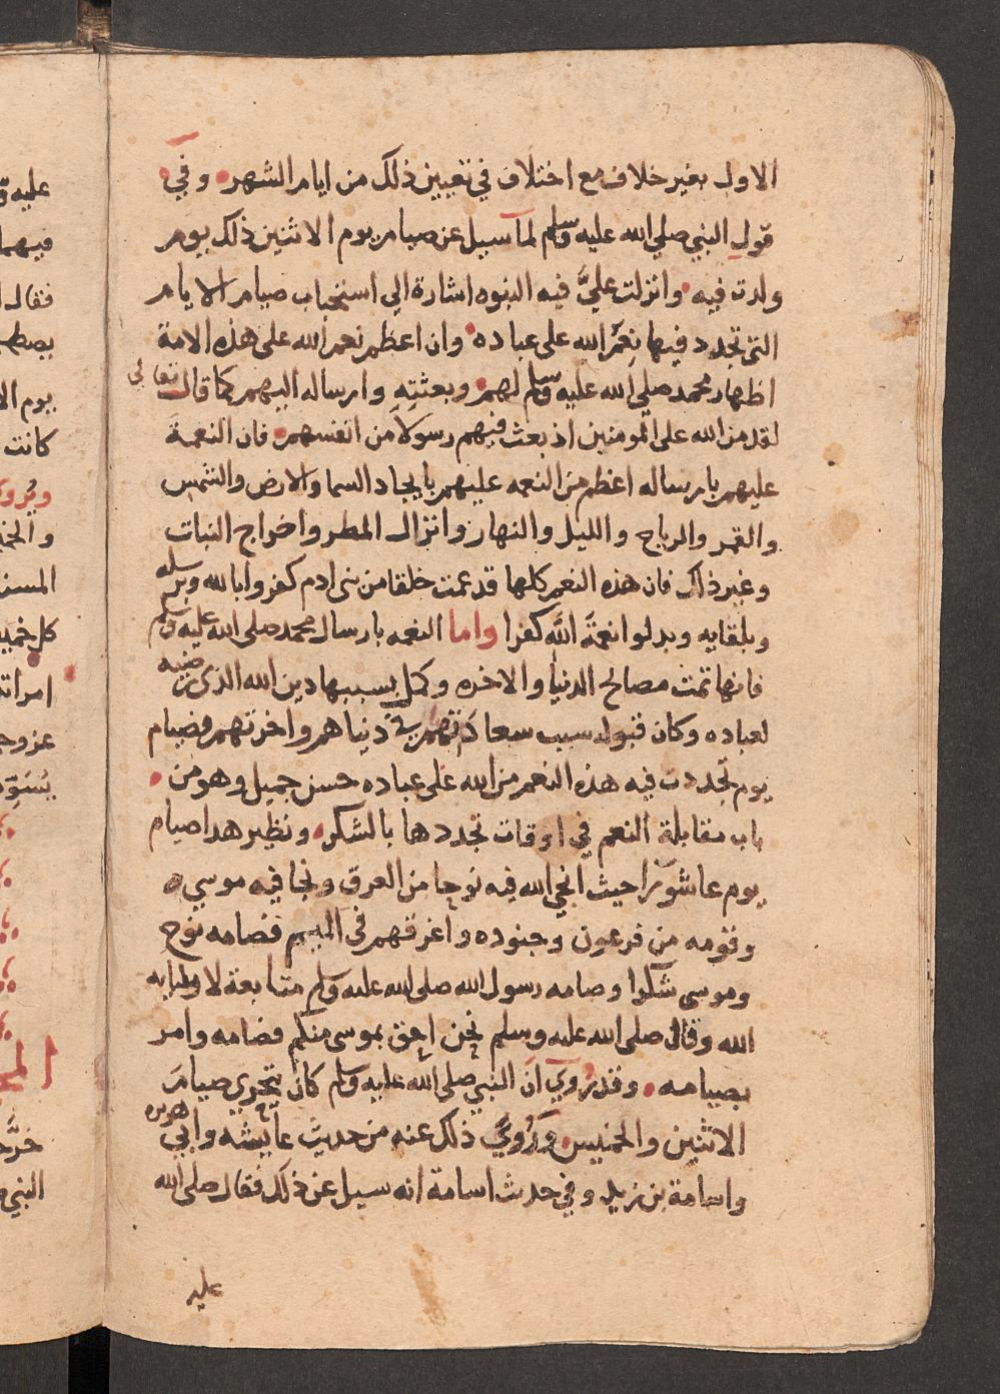 الاول بغير خلاف مع اختلاف في تعيين ذلك من ايام الشهر وفي
قول النبي صلي الله عليه وسلم لما سيل عن صيام يوم الاثنين ذلك يوم
ولدت فيه وانزلت عليَّ فيه النبوه اشارة الي استحباب صيام الايام
التي تجدد فيها نِعَمُ الله على عباده وان اعظم نعم الله على هذه الامة
اظهار محمد صلي الله عليه وسلم لهم وبعثتِهِ وارساله اليهم كما قال تعالى
لقد من الله على المومنين اذ بعث فيهم رسولا من انفسهم فان النعمة
عليهم بارساله اعظم من النعمه عليهم بايجاد السما والارض والشمس
والقمر والرياح والليل والنهار وانزال المطر واخراج النبات
وغير ذلك فان هذه النعم كلها قد عمت خلقا من بني ادم كفروا بالله وبرسله
وبلقايه وبدلوا نعمة الله كفرا واما النعمه بارسال محمد صلى الله عليه وسلم
فانها تمت مصالح الدنيا والاخره وكمل بسببها دين الله الذي رضيه
لعباده وكان قبوله سبب سعادتهم في دنياهم واخرتهم فصيام
يوم تجددت فيه هذه النعم من الله على عباده حسن جميل وهو من
باب مقابلة النعم في اوقات تجددها بالشكر ونظير هدا صيام
يوم عاشورا حيث انجي الله فيه نوحا من الغرق ونجا فيه موسي
وقومه من فرعون وجنوده واغرقهم في اليم فصامه نوح
وموسى شكرا وصامه رسول الله صلى الله عليه وسلم متابعة لانبيايه
الله وقال صلى الله عليه وسلم نحن احق بموسى منكم فصامه وامر
بصيامه وقد روي ان النبي صلى الله عليه وسلم كان يتحري صيام
الاثنين والخميس وَرُوِيَ ذلك عنه من حديث عايشه وابي هريره
واسامة بن زيد وفي حديث اسامة انه سيل عن ذلك فقال صلى الله
عليه